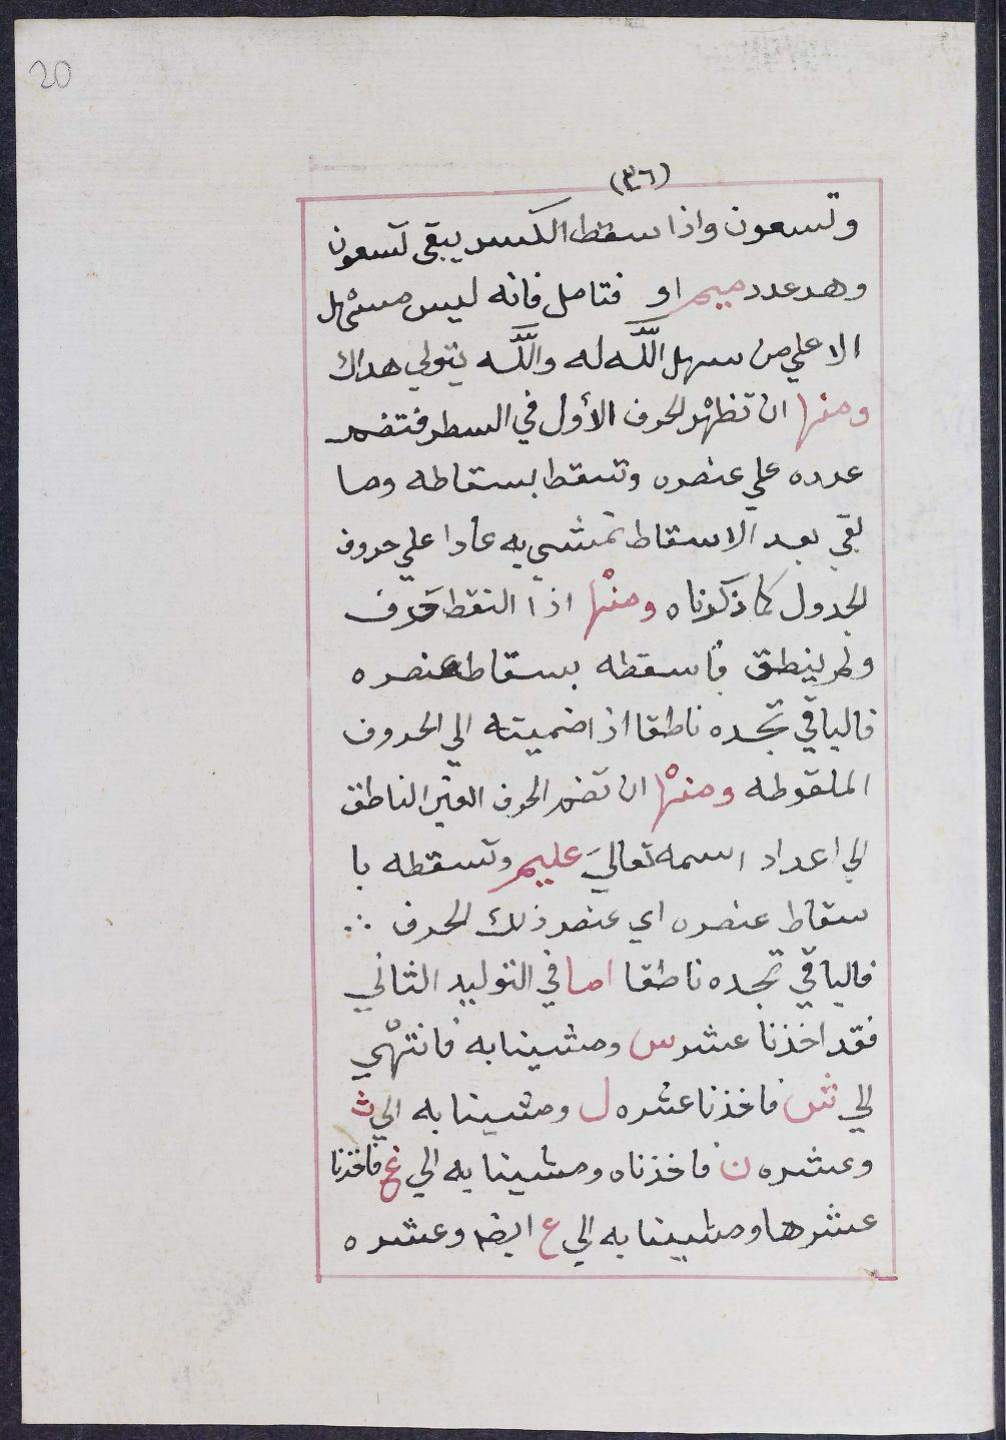 20
(٣٦)
وتسعون واذا سقط الكسر يبقى تسعون
وهد عدد ميم او فتامل فانه ليس مسهل
الا علي من سهل اللّه له واللّه يتولي هداك
ومنها ان تظهر الحرف الأول في السطر فتضم
عدده علي عنصره وتسقط بسقاطه وما
بقي بعد الاسقاط تمشي به عادا علي حروف
الجدول كما ذكرناه ومنها اذا التقط حرف
ولم ينطق فاسقطه بسقاط عنصره
فالباقي تجده ناطقا اذ اضميته الي الحروف
الملقوطه ومنها ان تضم الحرف الغير الناطق
الي اعداد اسمه تعاليَ عليم وتسقطه با
سقاط عنصره اي عنصر ذلك الحرف ∴
فالباقي تجده ناطقا اما في التوليد الثاني
فقد اخذنا عشر س ومشينا به فانتهي
الي ش فاخذنا عشره ل ومشينا به الي ث
وعشره ن فاخذناه ومشينا به الي غ فاخذنا
عشرها ومشينا به الي ع ايضا وعشره